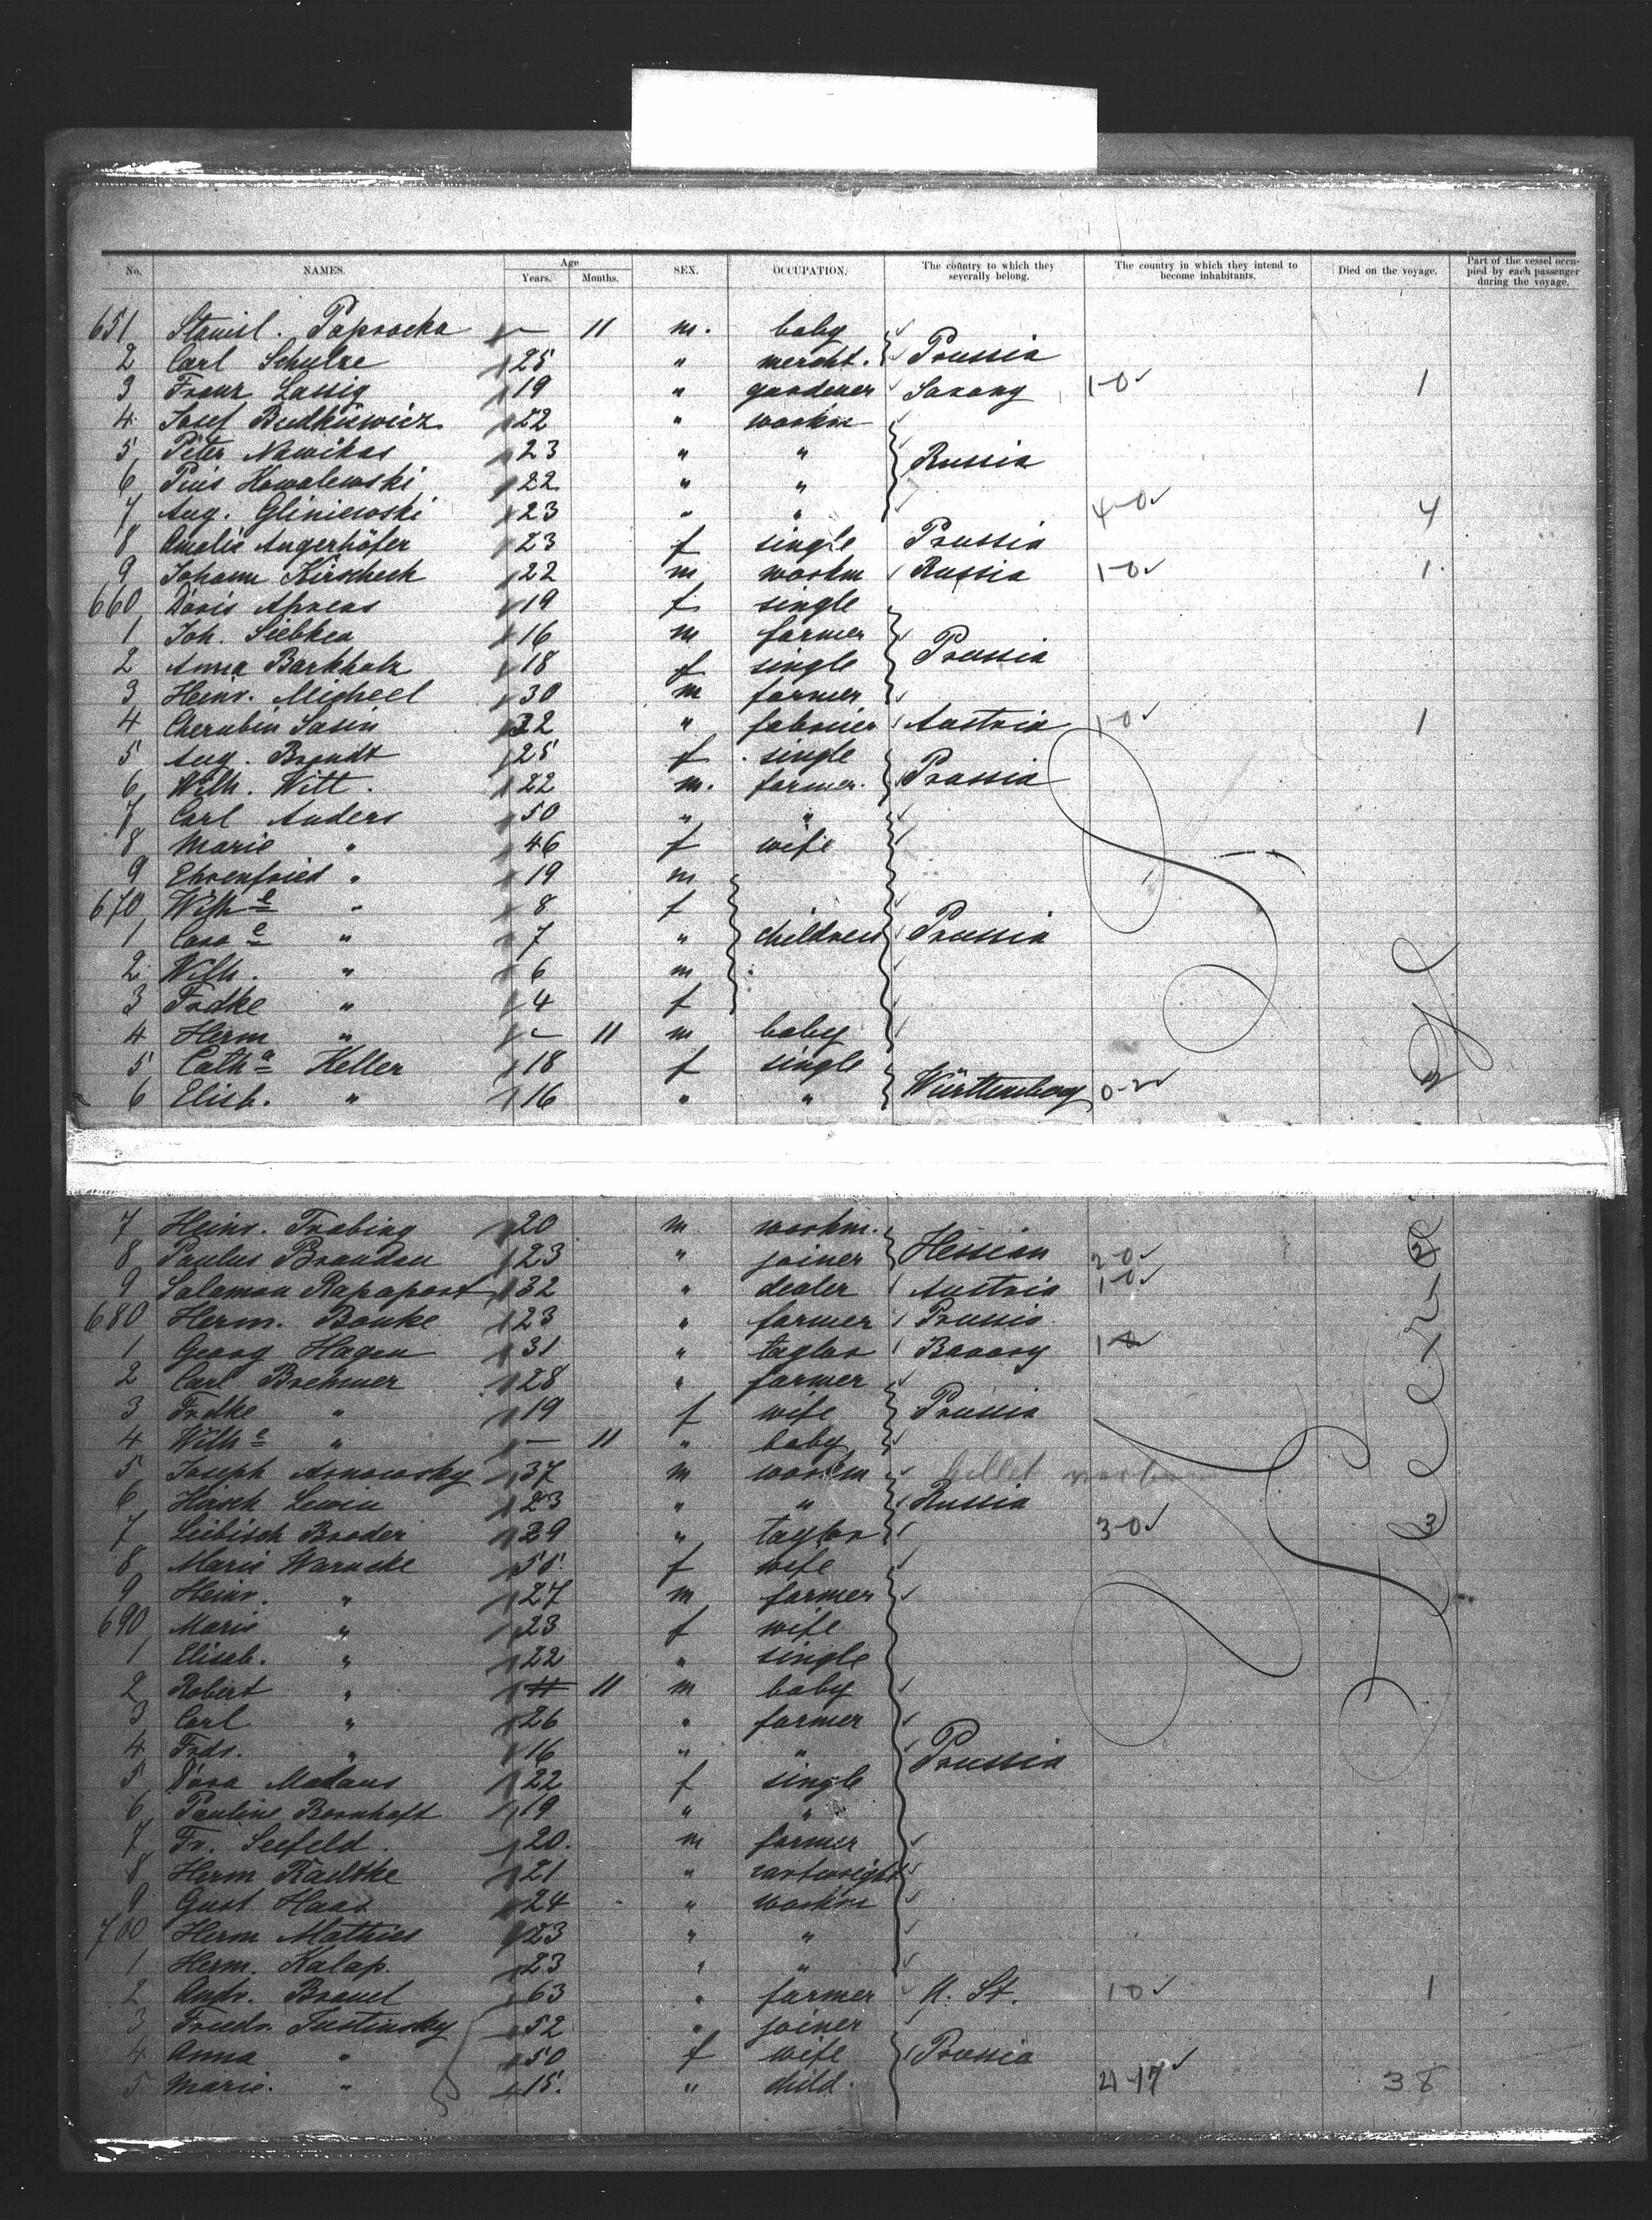 No. NAMES. Age Years. Months. SEX. OCCUPATION. The country to which they severally belong. The country in which they intend to become inhabitants. Died on the voyage. Part of the vessel occupied by each passenger during the voyage.
651 Stanisl. Paprocka — 11 m. baby
2 Carl Schulze 25 " mercht. Prussia
3 Franz Lassig 19 " gardener Saxony 1-0 1
4 Josef Budkiewicz 22 " workm
5 Peter Nawikas 23 " " Russia
6 Pius Kowalewski 22 " "
7 Aug. Gliniewski 23 " " 4-0 4
8 Amalie Angerhöfer 23 f single Prussia
9 Johann Kirscheck 22 m workm Russia 1-0 1
660 Doris Ahrens 19 f single
1 Joh. Siebken 16 m farmer Prussia
2 Anna Barkholz 18 f single
3 Heinr. Micheel 30 m farmer
4 Cherubin Sasin 32 " Austria 1-0 1
5 Aug. Brandt 25 f single
6 Wilh. Witt. 22 m. farmer. Prussia
7 Carl Anders 50 " "
8 Marie " 46 f wife
9 Ehrenfried " 19 m
670 Wilhe " 8 f
1 " 7 " children Prussia
2 Wilh. " 6 m
3 Frdke " 4 f
4 Herm " - 11 m baby
5 Catha Keller 18 f single
6 Elisb. " 16 " " Württemberg 0-2 2
7 Heinr. Trabing 20 m workm.
8 Paulus Brandau 23 " joiner Hessian 2-0 2
9 Salamon Rapaport 32 " dealer Austria 1-0
680 Herm. Bonke 23 " farmer Prussia
1 Georg Hagen 31 " taylor Bavary
2 Carl Brehmer 28 " farmer
3 Frdke " 19 f wife Prussia
4 Wilhe " — 11 " baby
5 Joseph Arnowsky 37 m workm
6 Hirsch Lewin 23 " " Russia
7 Leibisch Broder 29 " taylor 3-0 3
8 Marie Warncke 55. f wife
9 Heinr. " 27 m farmer
690 Marie " 23 f wife
1 Elisab. " 22 " single
2 Robert " 11 11 m baby
3 Carl " 26 " farmer
4 Frdr. " 16 " " Prussia
5 Dora Madaus 22 f single
6 Pauline Bornhoft 19 " "
7 Fr. Seefeld. 20. m farmer
8 Herm Radtke 21 " cartwright
9 Gust Haas 24 " workm
700 Herm Mathies 23 " "
1 Herm. Kalap. 23 " "
2 Andr. Braul 63 " farmer U. St. 1 0 1
3 Friedr. Justinsky 52 " joiner
4 Anna " 50 f wife Prussia
5 Marie. " 15. " child. 21-17 38